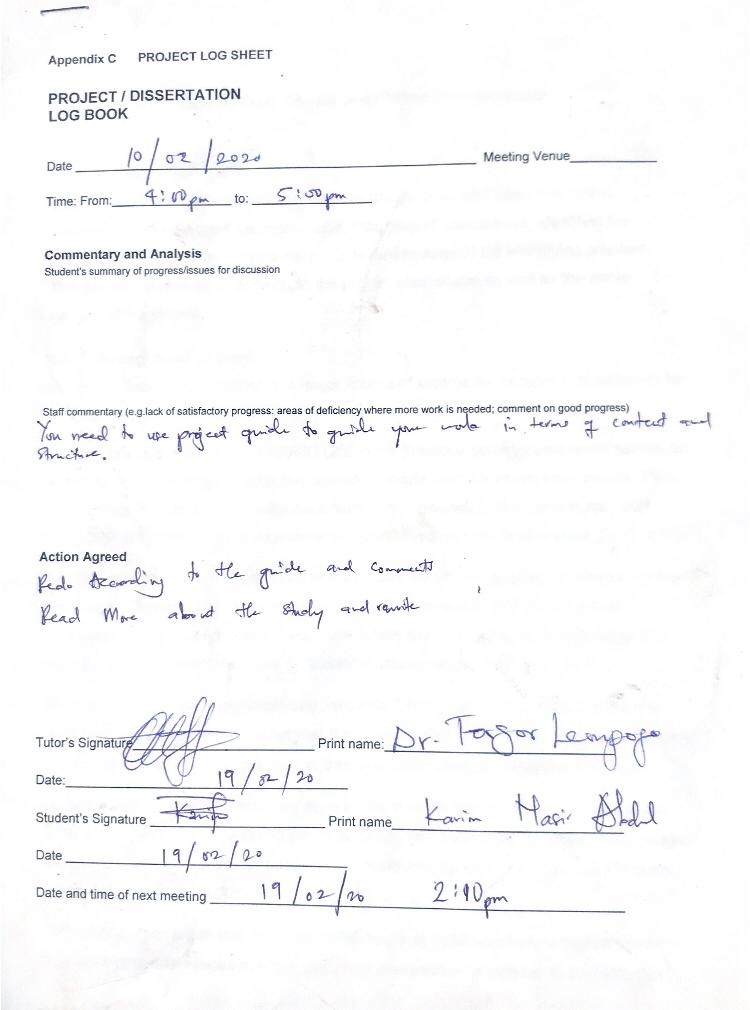 Appendix C PROJECT LOG SHEET
PROJECT / DISSERTATION
LOG BOOK
Date 10/02/2020 Meeting Venue
Time: From: 4:00pm to: 5:00pm
Commentary and Analysis
Student's summary of progress/issues for discussion
Staff commentary (e.g.lack of satisfactory progress: areas of deficiency where more work is needed; comment on good progress)
You need to use project guide to guide your work in terms of content and
structure.
Action Agreed
Redo According to the guide and comments
Read More about the study and rewrite
Tutor's Signature Print name: Dr.
Date: 19/02/20
Student's Signature Karim Print name Karim Abdul
Date 19/02/20
Date and time of next meeting 19/02/20 2:10pm